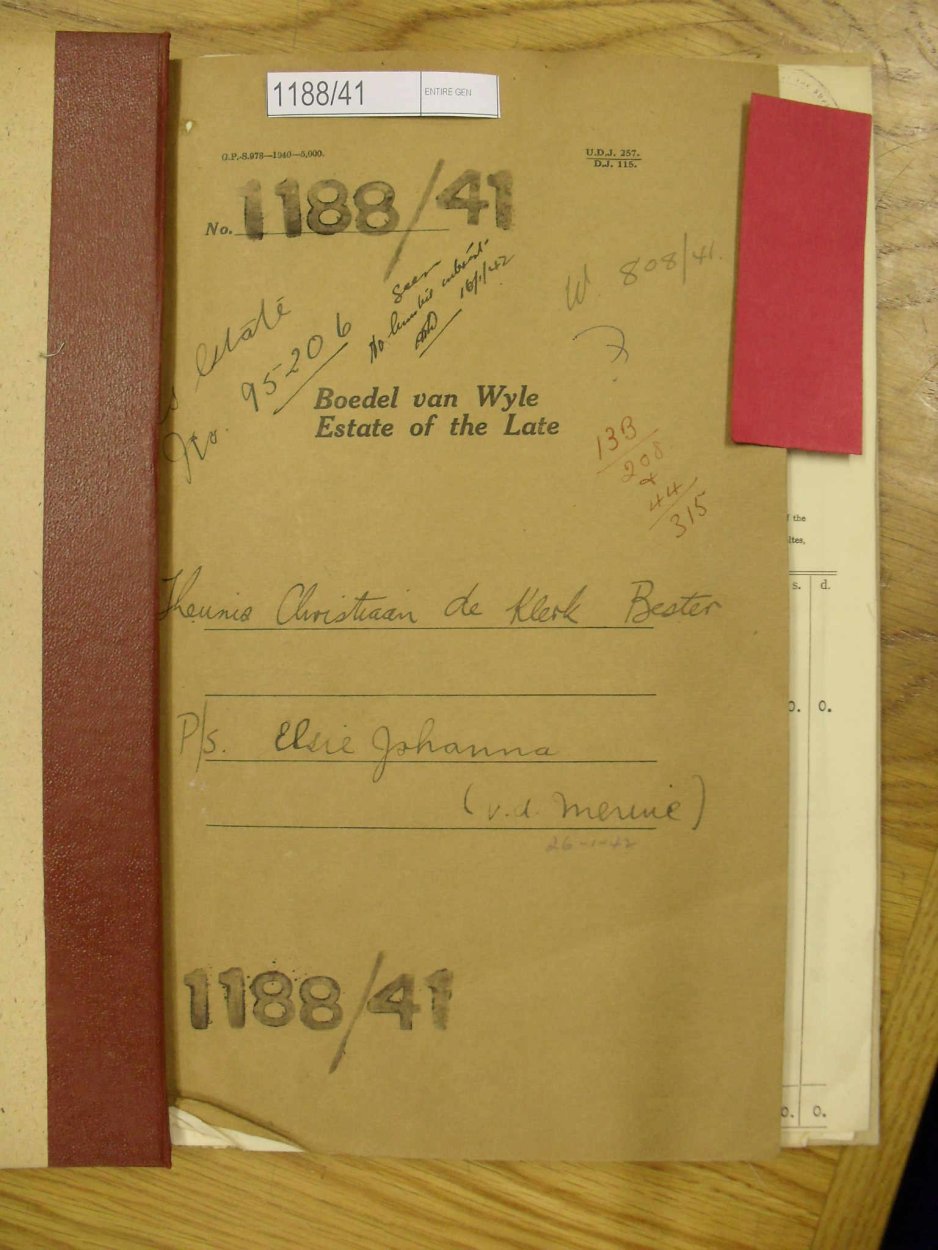 1188/41
ENTIRE GEN
G.P.-S.978—1940—5,000.
U.D.J. 257.
D.J. 115.
No. 1188/41
Seen
No
16/1/42
W. 808/41.
Estate
No. 95206
Boedel van Wyle
Estate of the Late
13B
208
&
44
315
f the
ltes,
s. d.
Theunis Christiaan de Klerk Bester
0. 0.
P/s. Elsie Johanna
(v.d. Merwe)
26-1-42
1188/41
0. 0.